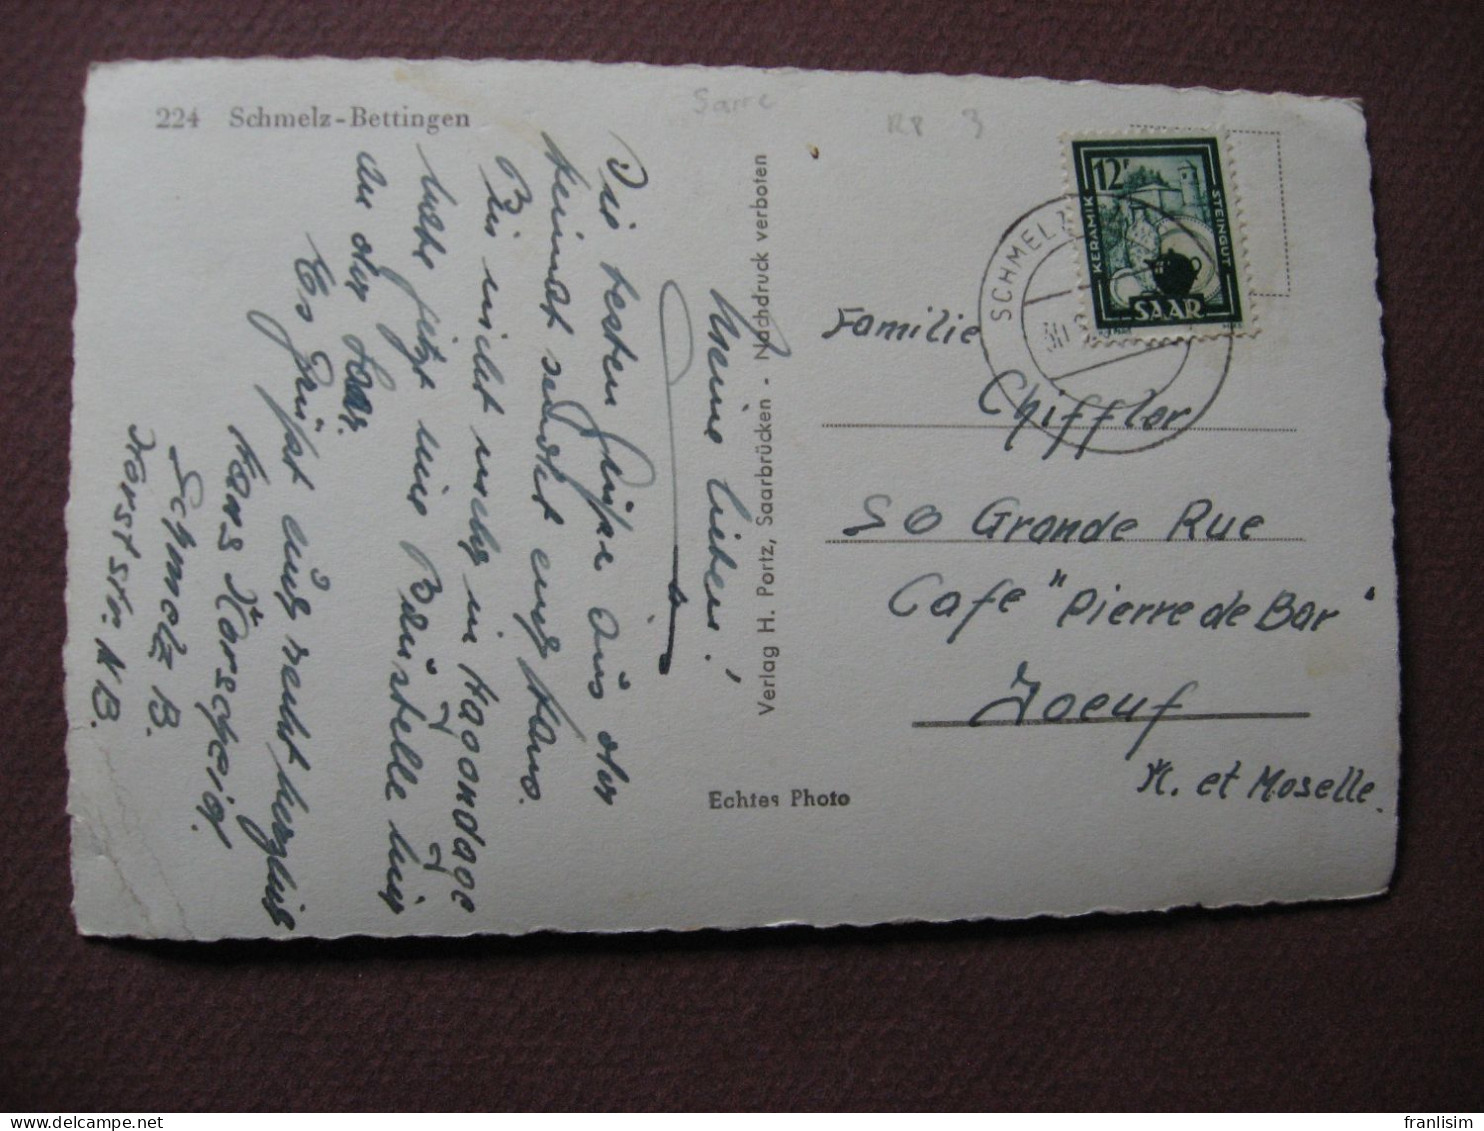 224 Schmelz-Bettingen
Sarre
RP 3
Meine Lieben!
Die besten Grüße aus der
Heimat sendet euch Hans.
Bin nicht mehr in Hagondage
habe jetzt eine Baustelle hier
an der Saar.
Es Grüßt euch recht herzlich
Hans Horscheid.
Schmelz B.
Horststr. N B.
Verlag H. Portz, Saarbrücken - Nachdruck verboten
Echtes Photo
12F
KERAMIK
STEINGUT
SAAR
SCHMELZ
30.
Familie
Chiffler
50 Grande Rue
Cafe "Pierre de Bar"
Joeuf
M. et Moselle.
franlisim